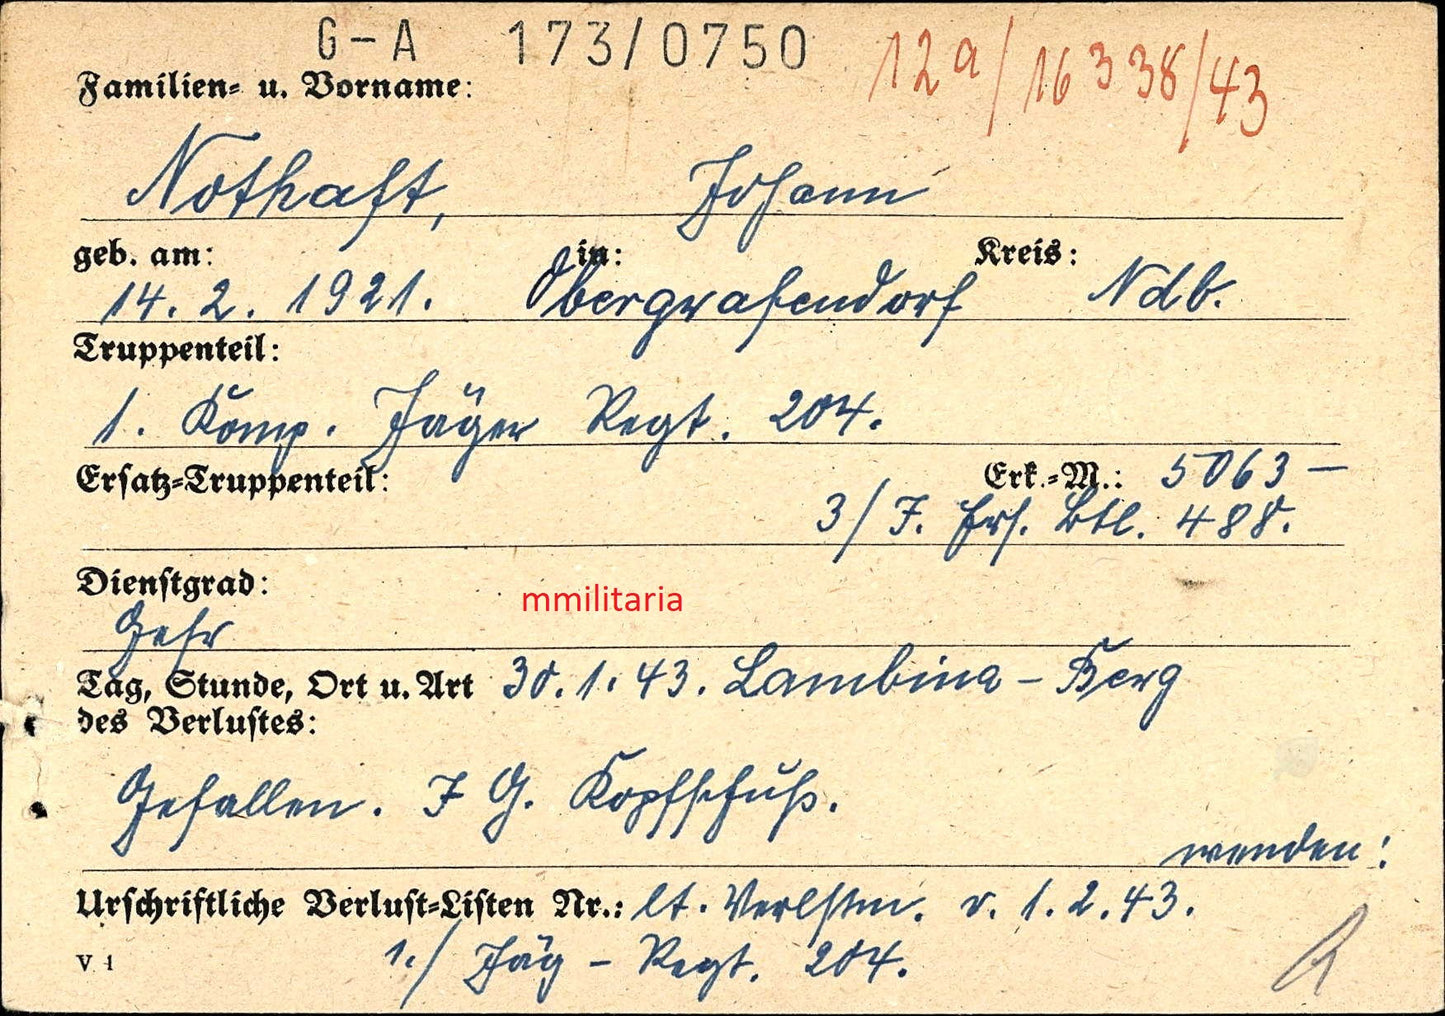 G-A 173/0750 12a/16338/43
Familien- u. Vorname:
Nothaft, Johann
geb. am: in: Kreis:
14. 2. 1921. Obergrafendorf Ndb.
Truppenteil:
1. Komp. Jäger Regt. 204.
Ersatz-Truppenteil: Erk.-M.: 5063 —
3/J. Ers. Btl. 488.
Dienstgrad:
mmilitaria
Gefr
Tag, Stunde, Ort u. Art 30.1.43. Lambina - Berg
des Verlustes:
Gefallen. I G. Kopfschuß.
wenden!
Urschriftliche Verlust-Listen Nr.: lt. Verlstm. v. 1.2.43.
V 1 1./ Jäg - Regt. 204.